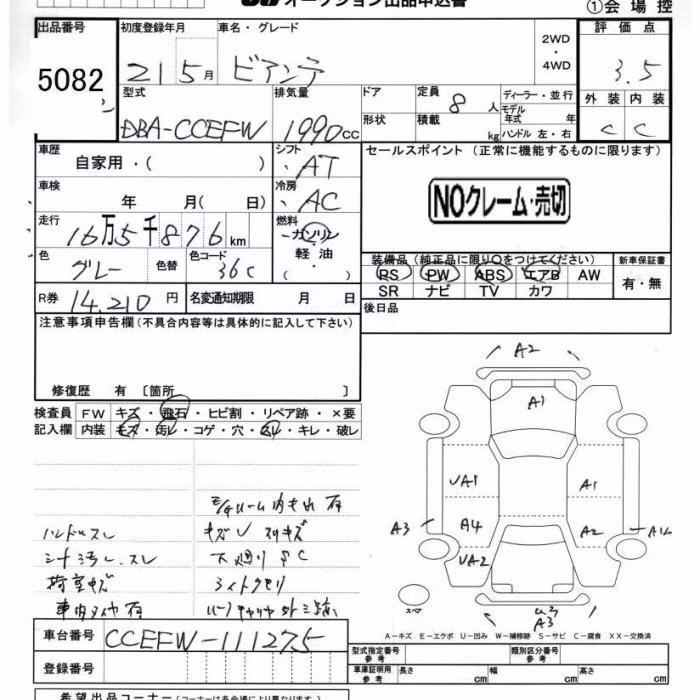 オークション出品申込書
①会場控
出品番号
5082
初度登録年月
21 5月
車名・グレード
ビアンテ
2WD
・
4WD
評価点
3.5
型式
DBA-CCEFW
排気量
1990cc
ドア
形状
定員 8人
積載 kg
ディーラー・並行
モデル年式 年
ハンドル 左・右
外装 内装
C C
車歴
自家用・( )
シフト
AT
セールスポイント (正常に機能するものに限ります)
NOクレーム・売切
車検
年 月( 日)
冷房
AC
走行
16万5千876km
燃料
ガソリン
軽油
・( )
色
グレー
色替
色コード
36C
装備品(純正品に限り○をつけてください)
PS PW ABS エアB AW
SR ナビ TV カワ
新車保証書
有・無
R券 14,210円
名変通知期限 月 日
後日品
注意事項申告欄(不具合内容等は具体的に記入して下さい)
修復歴 有 〔箇所 〕
検査員記入欄
FW キズ・飛石・ヒビ割・リペア跡・×要
内装 キズ・汚レ・コゲ・穴・スレ・キレ・破レ
ハンドルスレ
シート汚レ、スレ
荷室キズ
キズU スリキズ
下廻りSC
ライトクモリ
A2
A1
UA1
A1
A3
A4
A2
UA2
スペア
A3
A・キズ E・エクボ U・凹み W・補修跡 S・サビ C・腐食 XX・交換済
車台番号
CCEFW-111275
登録番号
型式指定番号
参考
類別区分番号
参考
車庫証明用
参考
長さ cm
幅 cm
高さ cm
希望出品コーナー(コーナーは各会場により異なります)